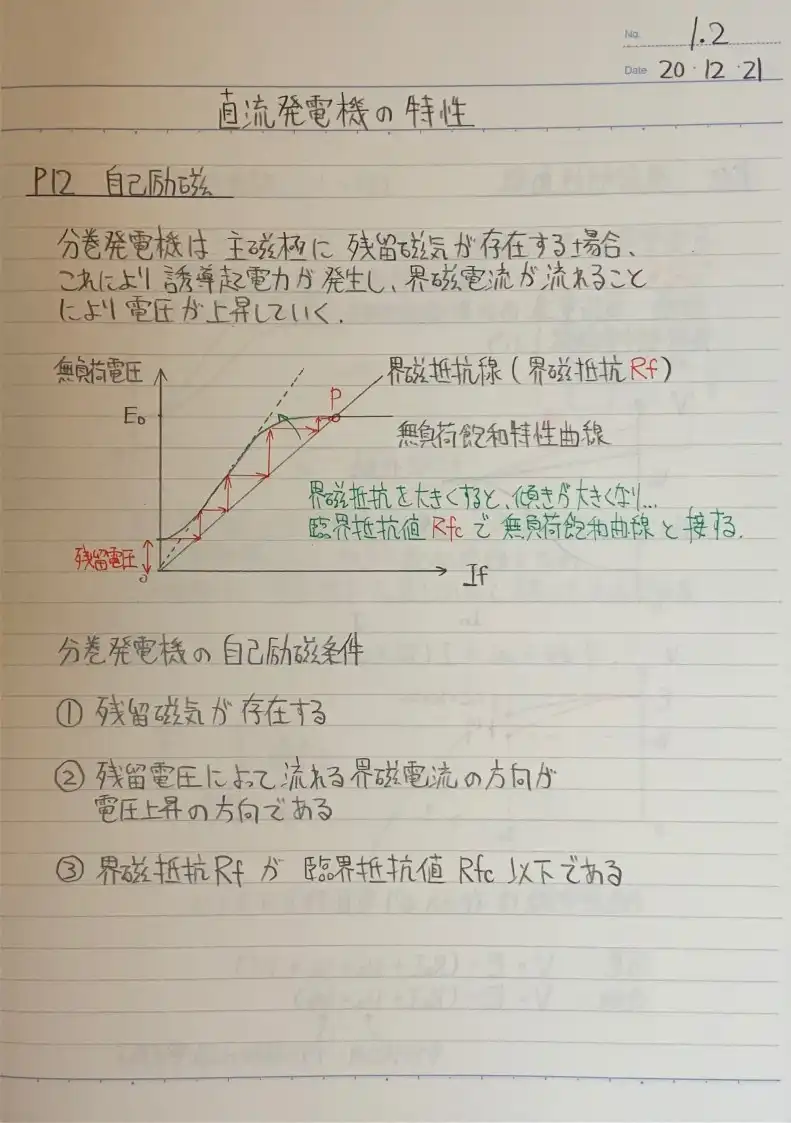 No. 1.2
Date 20・12・21
直流発電機の特性
P12 自己励磁
分巻発電機は主磁極に残留磁気が存在する場合、
これにより誘導起電力が発生し、界磁電流が流れること
により電圧が上昇していく.
無負荷電圧
界磁抵抗線(界磁抵抗Rf)
P
E₀
無負荷飽和特性曲線
界磁抵抗を大きくすると、傾きが大きくなり…
臨界抵抗値Rfcで無負荷飽和曲線と接する.
残留電圧
0
If
分巻発電機の自己励磁条件
① 残留磁気が存在する
② 残留電圧によって流れる界磁電流の方向が
電圧上昇の方向である
③ 界磁抵抗Rfが臨界抵抗値Rfc以下である